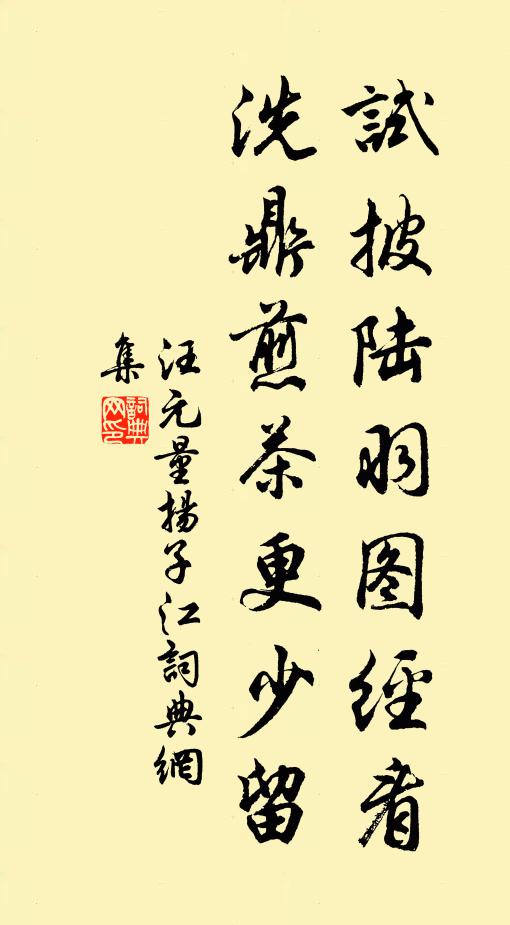 試披陆羽图經看
洗鼎煎茶更少留
汪元量揚子江詞典網
集
詞典網印